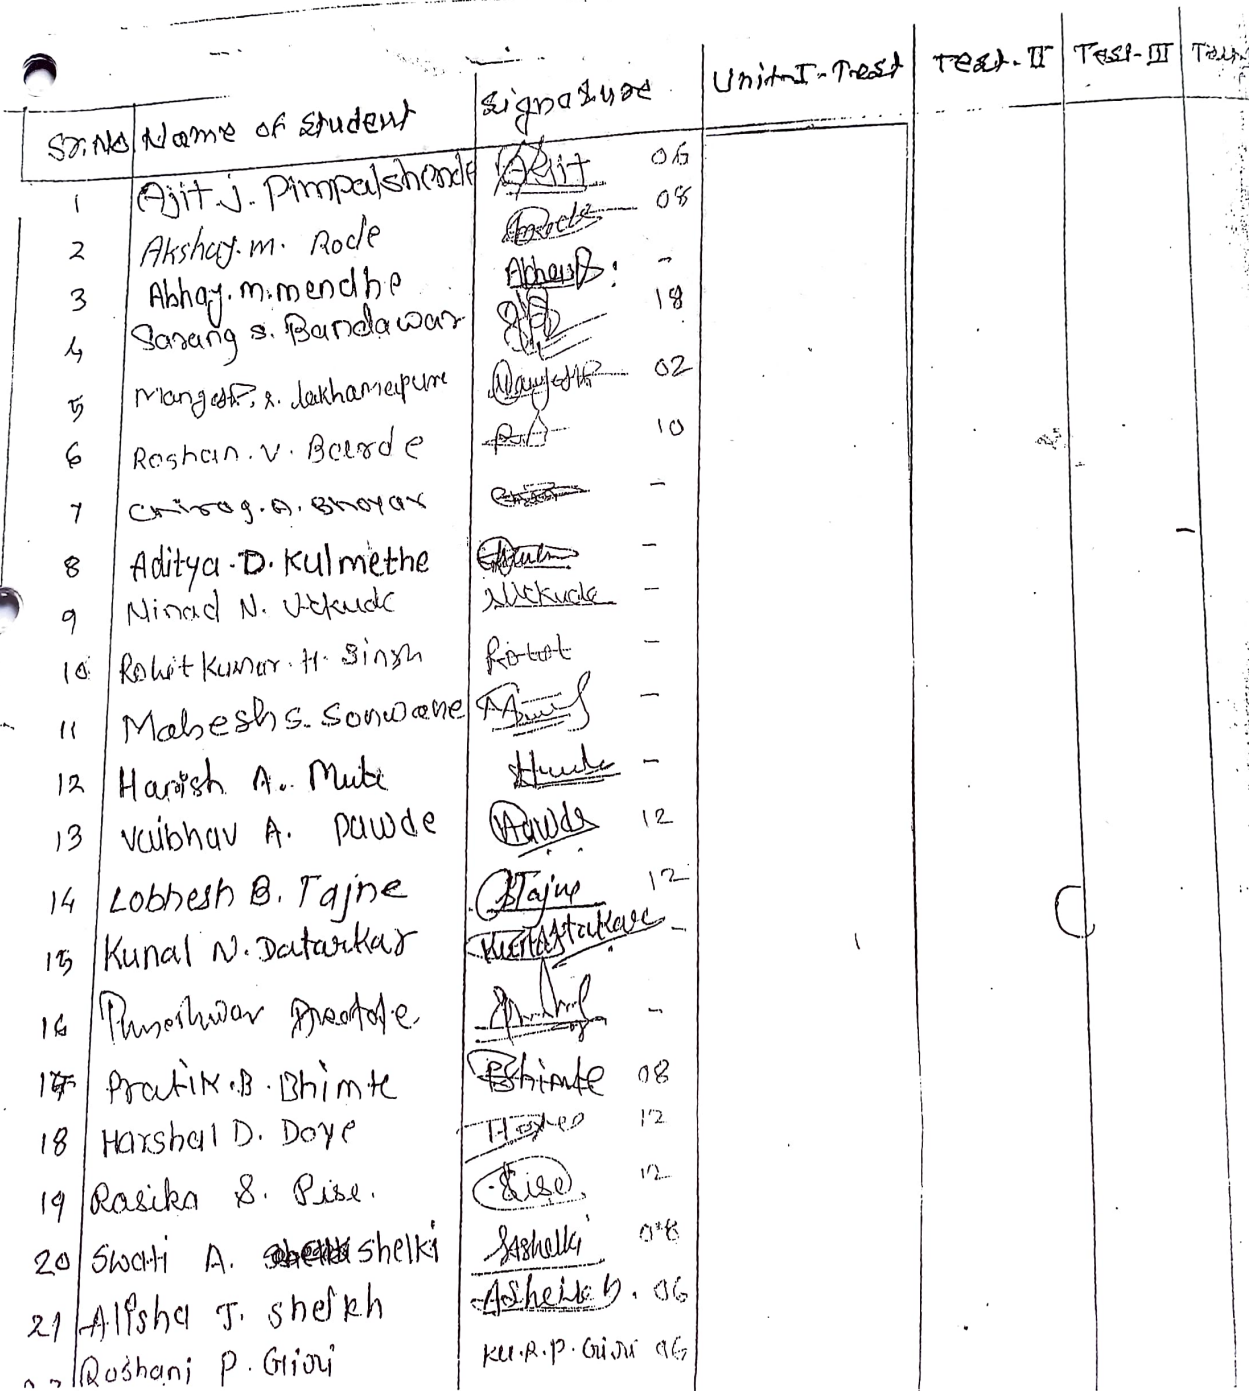 Sr.No Name of Student Signature Unit-I-Test Test-II Test-III
1 Ajit.J. Pimpalshende Ajit 06
2 Akshay.m. Rode 08
3 Abhay.m.mendhe Abhay -
4 Sarang s. Bandawar 18
5 Mangesh.s. Lakhamapure Mangesh 02
6 Roshan.V. Barde 10
7 Chirag.A. Bhoyar -
8 Aditya.D. Kulmethe -
9 Ninad N. Utkude NUtkude -
10 Rohit Kumar.H. Singh Rohit -
11 Mahesh S. Sonwane -
12 Harish A. Mute -
13 Vaibhav A. Pawde Pawde 12
14 Lobhesh B. Tajne BTajne 12
15 Kunal N. Datarkar -
16 -
17 Pratik.B. Bhimte Bhimte 08
18 Harshal D. Doye 12
19 Rasika S. Pise. Pise. 12
20 Swati A. shelki SAshelki 08
21 Alisha J. sheikh ASheikh. 06
Roshani P. Giri KU.R.P. Giri 06